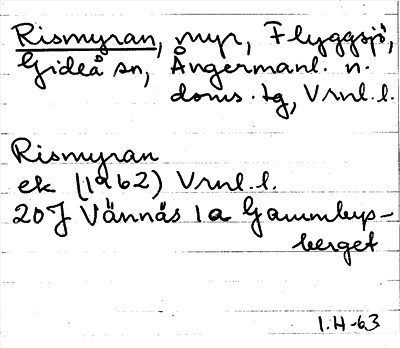 Rismyran, myr, Flyggsjö,
Gideå sn, Ångermanl. n.
doms. tg, Vrnl. l.
Rismyran
ek (1962) Vrnl. l.
20J Vännäs 1a Gammbyps-
berget
1.H-63